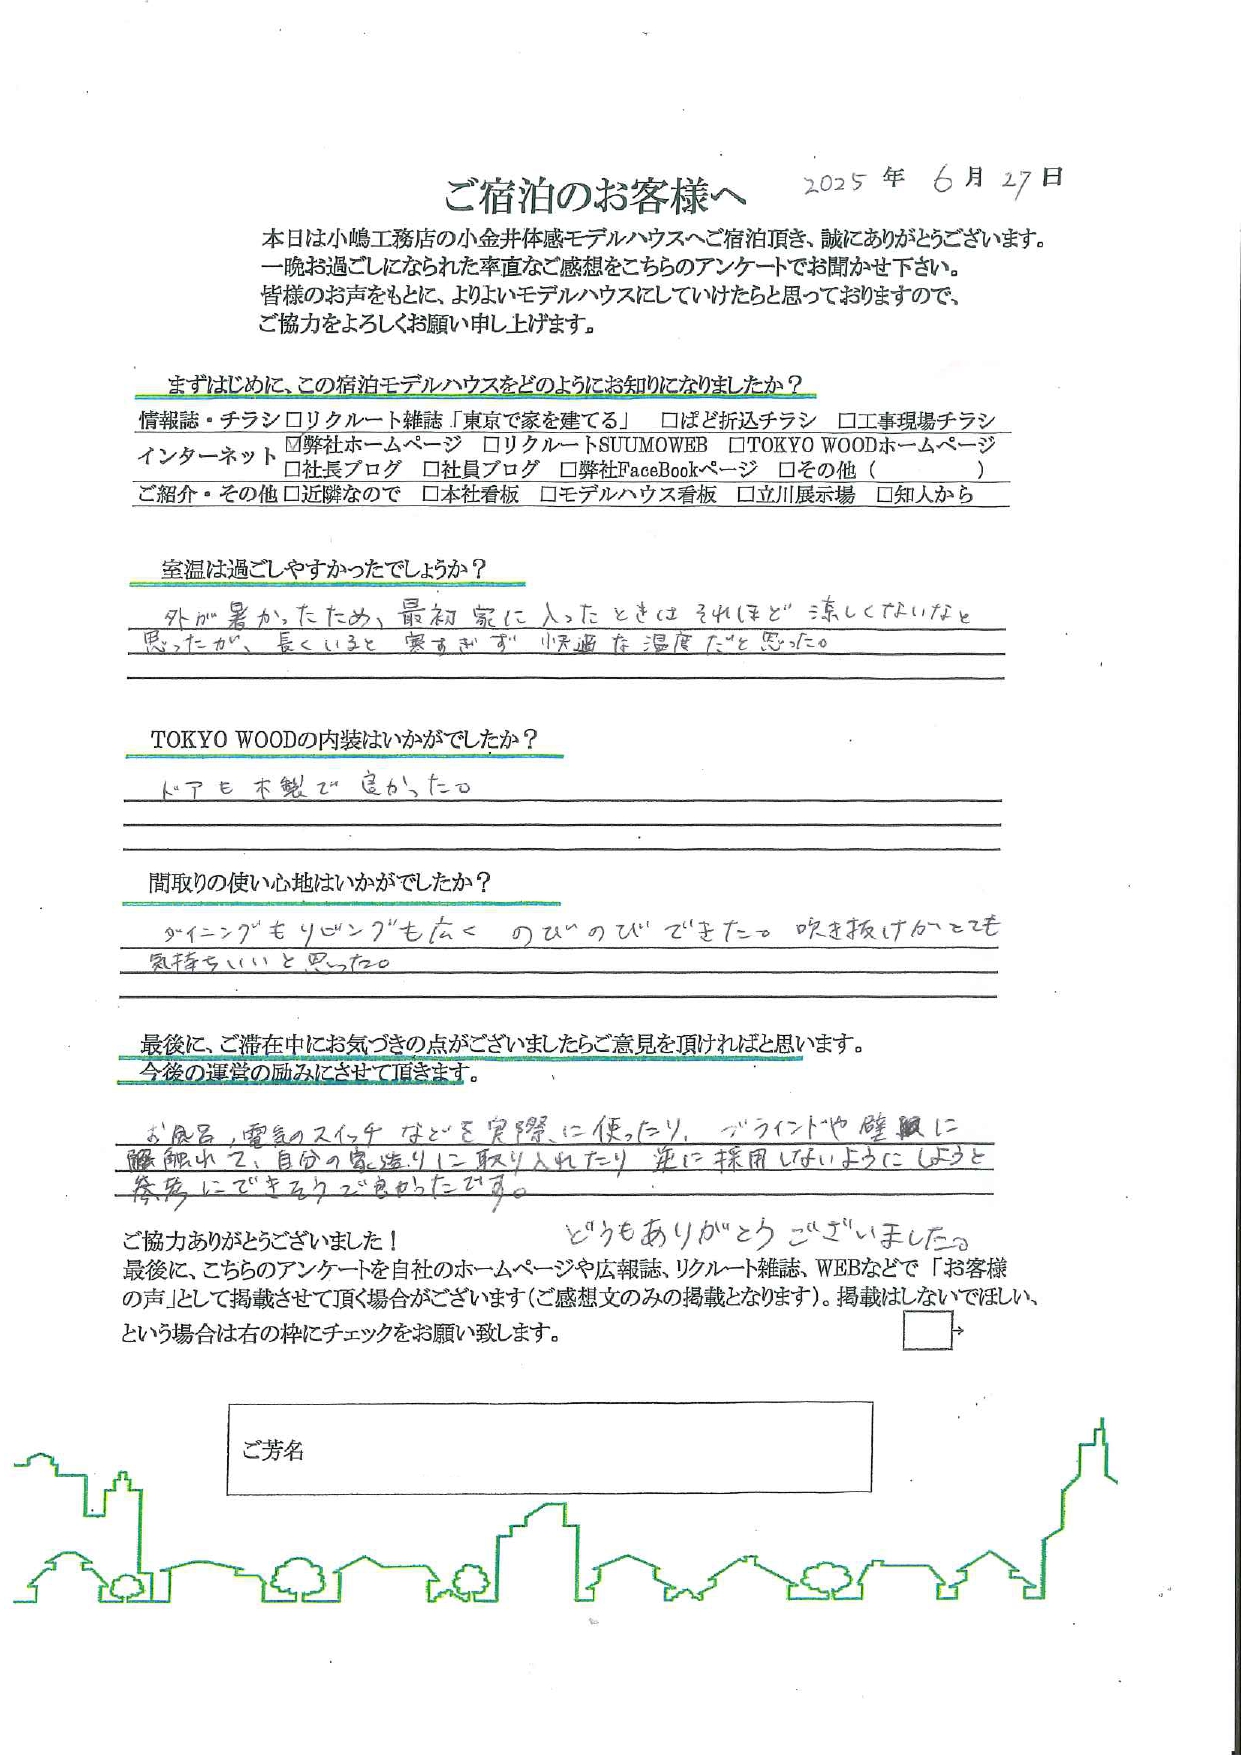 2025 年 6 月 27 日
ご宿泊のお客様へ
本日は小嶋工務店の小金井体感モデルハウスへご宿泊頂き、誠にありがとうございます。
一晩お過ごしになられた率直なご感想をこちらのアンケートでお聞かせ下さい。
皆様のお声をもとに、よりよいモデルハウスにしていけたらと思っておりますので、
ご協力をよろしくお願い申し上げます。
まずはじめに、この宿泊モデルハウスをどのようにお知りになりましたか？
情報誌・チラシ □リクルート雑誌「東京で家を建てる」 □ぱど折込チラシ □工事現場チラシ
インターネット ☑弊社ホームページ □リクルートSUUMOWEB □TOKYO WOODホームページ
□社長ブログ □社員ブログ □弊社FaceBookページ □その他（　　　　）
ご紹介・その他 □近隣なので □本社看板 □モデルハウス看板 □立川展示場 □知人から
室温は過ごしやすかったでしょうか？
外が暑かったため、最初家に入ったときはそれほど涼しくないなと
思ったが、長くいると寒すぎず快適な温度だと思った。
TOKYO WOODの内装はいかがでしたか？
ドアも木製で良かった。
間取りの使い心地はいかがでしたか？
ダイニングもリビングも広く のびのびできた。吹き抜けがとても
気持ちいいと思った。
最後に、ご滞在中にお気づきの点がございましたらご意見を頂ければと思います。
今後の運営の励みにさせて頂きます。
お風呂，電気のスイッチなどを実際に使ったり、ブラインドや壁に
触れて、自分の家造りに取り入れたり逆に採用しないようにしようと
参考にできそうで良かったです。
どうもありがとうございました。
ご協力ありがとうございました！
最後に、こちらのアンケートを自社のホームページや広報誌、リクルート雑誌、WEBなどで「お客様
の声」として掲載させて頂く場合がございます（ご感想文のみの掲載となります）。掲載はしないでほしい、
という場合は右の枠にチェックをお願い致します。 □→
ご芳名